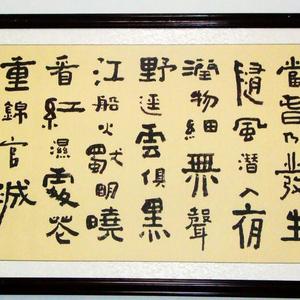 當春乃發生
隨風潛入夜
潤物細無聲
野徑雲俱黑
江船火獨明曉
看紅濕處花
重錦官城